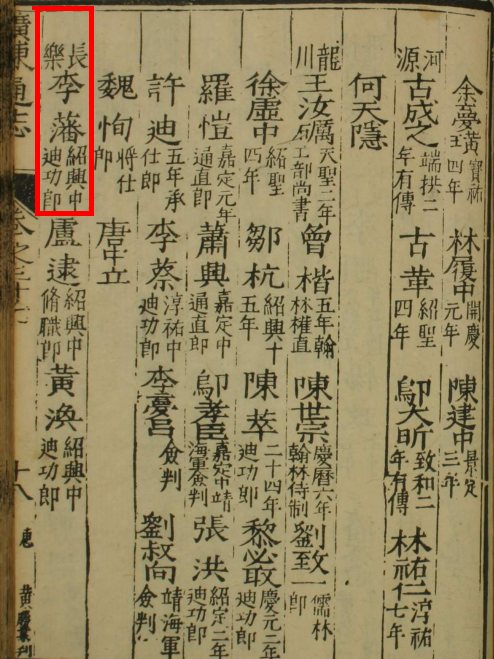 余夢 寶祐四年 林履中 開慶元年 陳建中 景定三年
河源 古成之 端拱二年有傳 古華 紹聖四年 鄔大昕 致和二年有傳 林祐仁 淳祐七年
何天隱
龍川 王汝礪 天聖二年工部尚書 曾楷 五年翰林權直 陳世崇 慶曆六年翰林侍制 劉致一 至儒林郎
徐虛中 紹聖四年 鄒杭 紹興十五年 陳萃 二十四年迪功郎 黎必敢 慶元二年迪功郎
羅愷 嘉定元年通直郎 蕭興 嘉定中通直郎 鄔孝臣 嘉定中靖海軍僉判 張洪 紹定二年迪功郎
許迪 五年承仕郎 李蔡 淳祐中迪功郎 李 僉判 劉叔向 靖海軍僉判
魏恂 將仕郎 唐中立
長樂 李藩 紹興中迪功郎 盧逮 紹興中脩職郎 黃渙 紹興中迪功郎
廣東通志 卷之三十 十八 惠